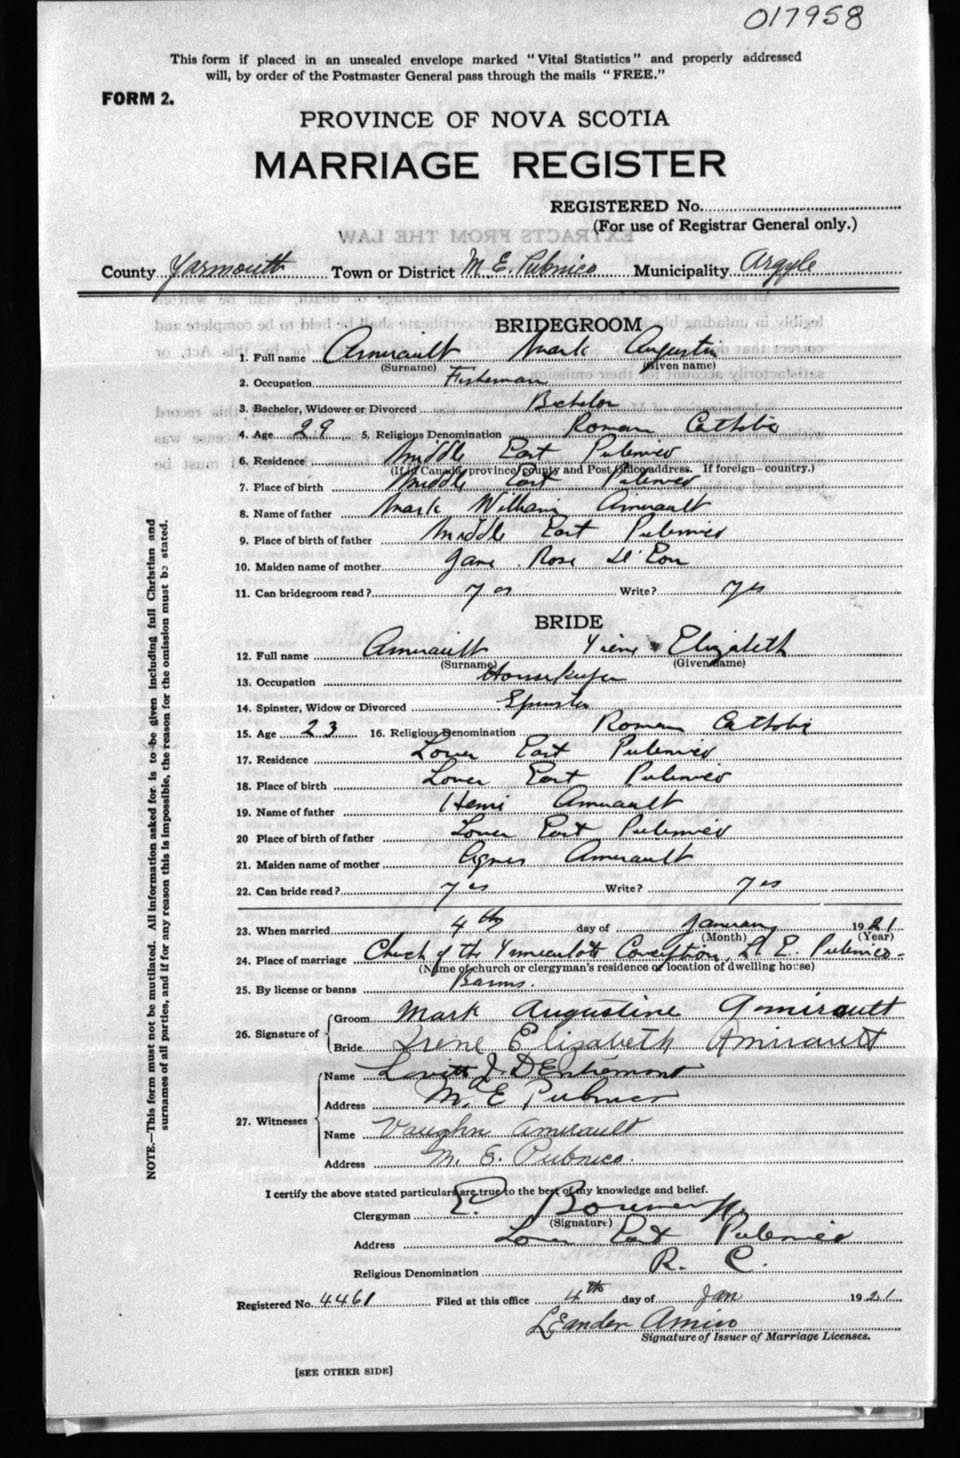 017958
This form if placed in an unsealed envelope marked "Vital Statistics" and properly addressed
will, by order of the Postmaster General pass through the mails "FREE."
FORM 2.
PROVINCE OF NOVA SCOTIA
MARRIAGE REGISTER
REGISTERED No.
(For use of Registrar General only.)
County Yarmouth Town or District M. E. Pubnico Municipality Argyle
BRIDEGROOM
1. Full name Amirault Mark Augustin
(Surname) (Given name)
2. Occupation Fisherman
3. Bachelor, Widower or Divorced Bachelor
4. Age 29 5. Religious Denomination Roman Catholic
6. Residence Middle East Pubnico
(If in Canada, province, county and Post Office address. If foreign—country.)
7. Place of birth Middle East Pubnico
8. Name of father Mark William Amirault
9. Place of birth of father Middle East Pubnico
10. Maiden name of mother Jane Rose d'Eon
11. Can bridegroom read? yes Write? yes
BRIDE
12. Full name Amirault Irene Elizabeth
(Surname) (Given name)
13. Occupation Housekeeper
14. Spinster, Widow or Divorced Spinster
15. Age 23 16. Religious Denomination Roman Catholic
17. Residence Lower East Pubnico
18. Place of birth Lower East Pubnico
19. Name of father Henri Amirault
20 Place of birth of father Lower East Pubnico
21. Maiden name of mother Agnes Amirault
22. Can bride read? yes Write? yes
23. When married 4th day of January 1921
(Month) (Year)
24. Place of marriage Church of the Immaculate Conception, L. E. Pubnico.
(Name of church or clergyman's residence or location of dwelling house)
25. By license or banns Banns.
26. Signature of Groom Mark Augustine Amirault
Bride Irene Elisabeth Amirault
27. Witnesses Name Levitt J. D'Entremont
Address M. E. Pubnico
Name Vaughn Amirault
Address M. E. Pubnico.
I certify the above stated particulars are true to the best of my knowledge and belief.
Clergyman E.
(Signature)
Address Lower East Pubnico
Religious Denomination R. C.
Registered No. 4461 Filed at this office 4th day of Jan 1921
Leander Amiro
Signature of Issuer of Marriage Licenses.
[SEE OTHER SIDE]
NOTE.—This form must not be mutilated. All information asked for is to be given including full Christian and
surnames of all parties, and if for any reason this is impossible, the reason for the omission must be stated.